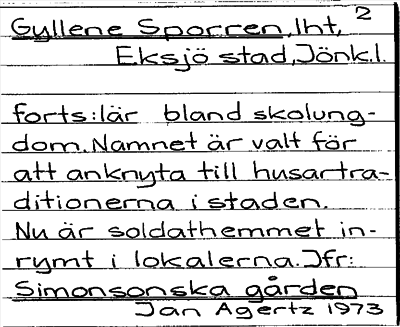 Gyllene Sporren, lht, 2
Eksjö stad, Jönk.l.
forts: lär bland skolung-
dom. Namnet är valt för
att anknyta till husartra-
ditionerna i staden.
Nu är soldathemmet in-
rymt i lokalerna. Jfr:
Simonsonska gården
Jan Agertz 1973